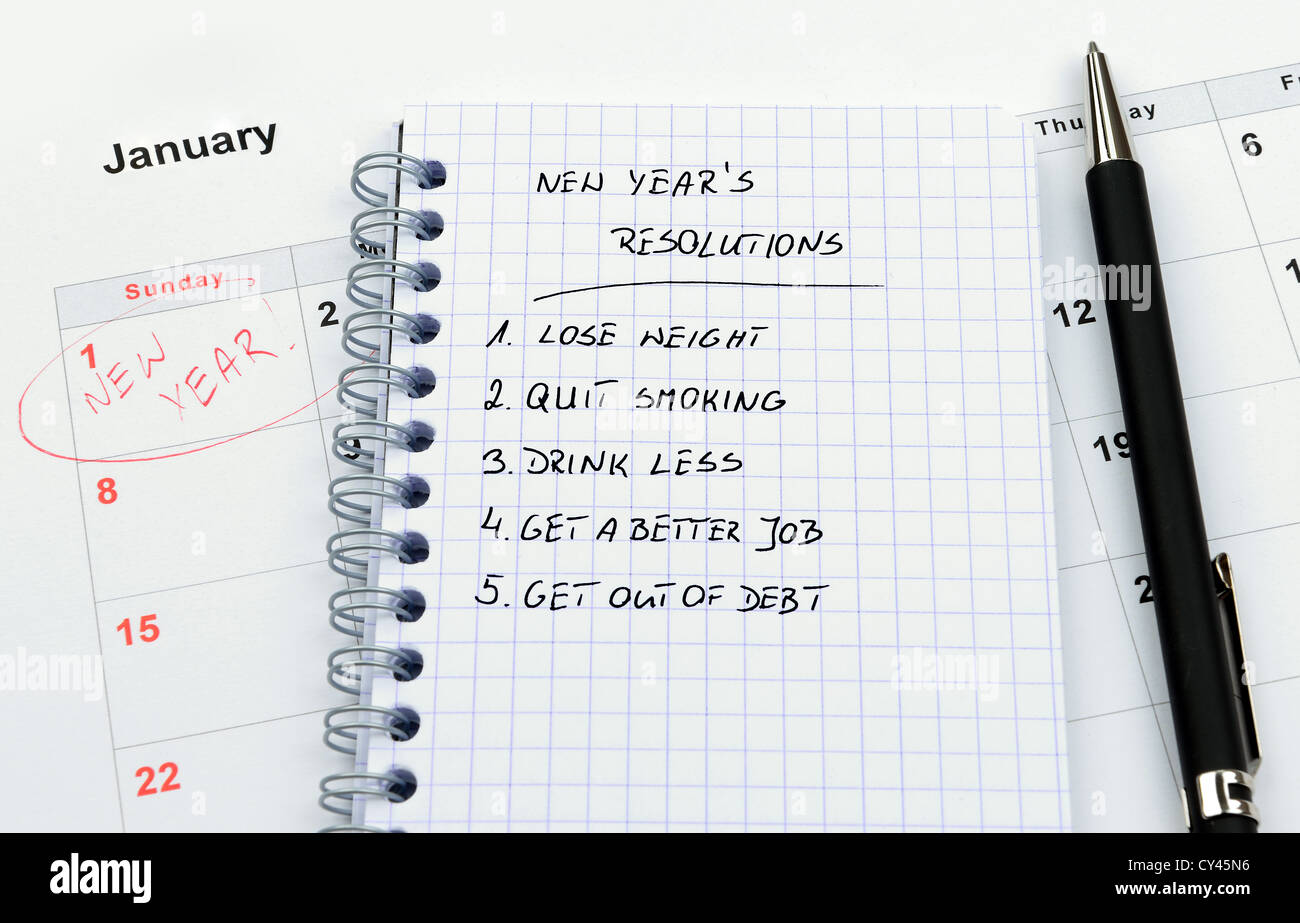 January
Sunday
1
NEW
YEAR.
2
8
9
15
22
NEW YEAR'S
RESOLUTIONS
1. LOSE WEIGHT
2. QUIT SMOKING
3. DRINK LESS
4. GET A BETTER JOB
5. GET OUT OF DEBT
6
12
19
2
alamy
Image ID: CY45N6
www.alamy.com